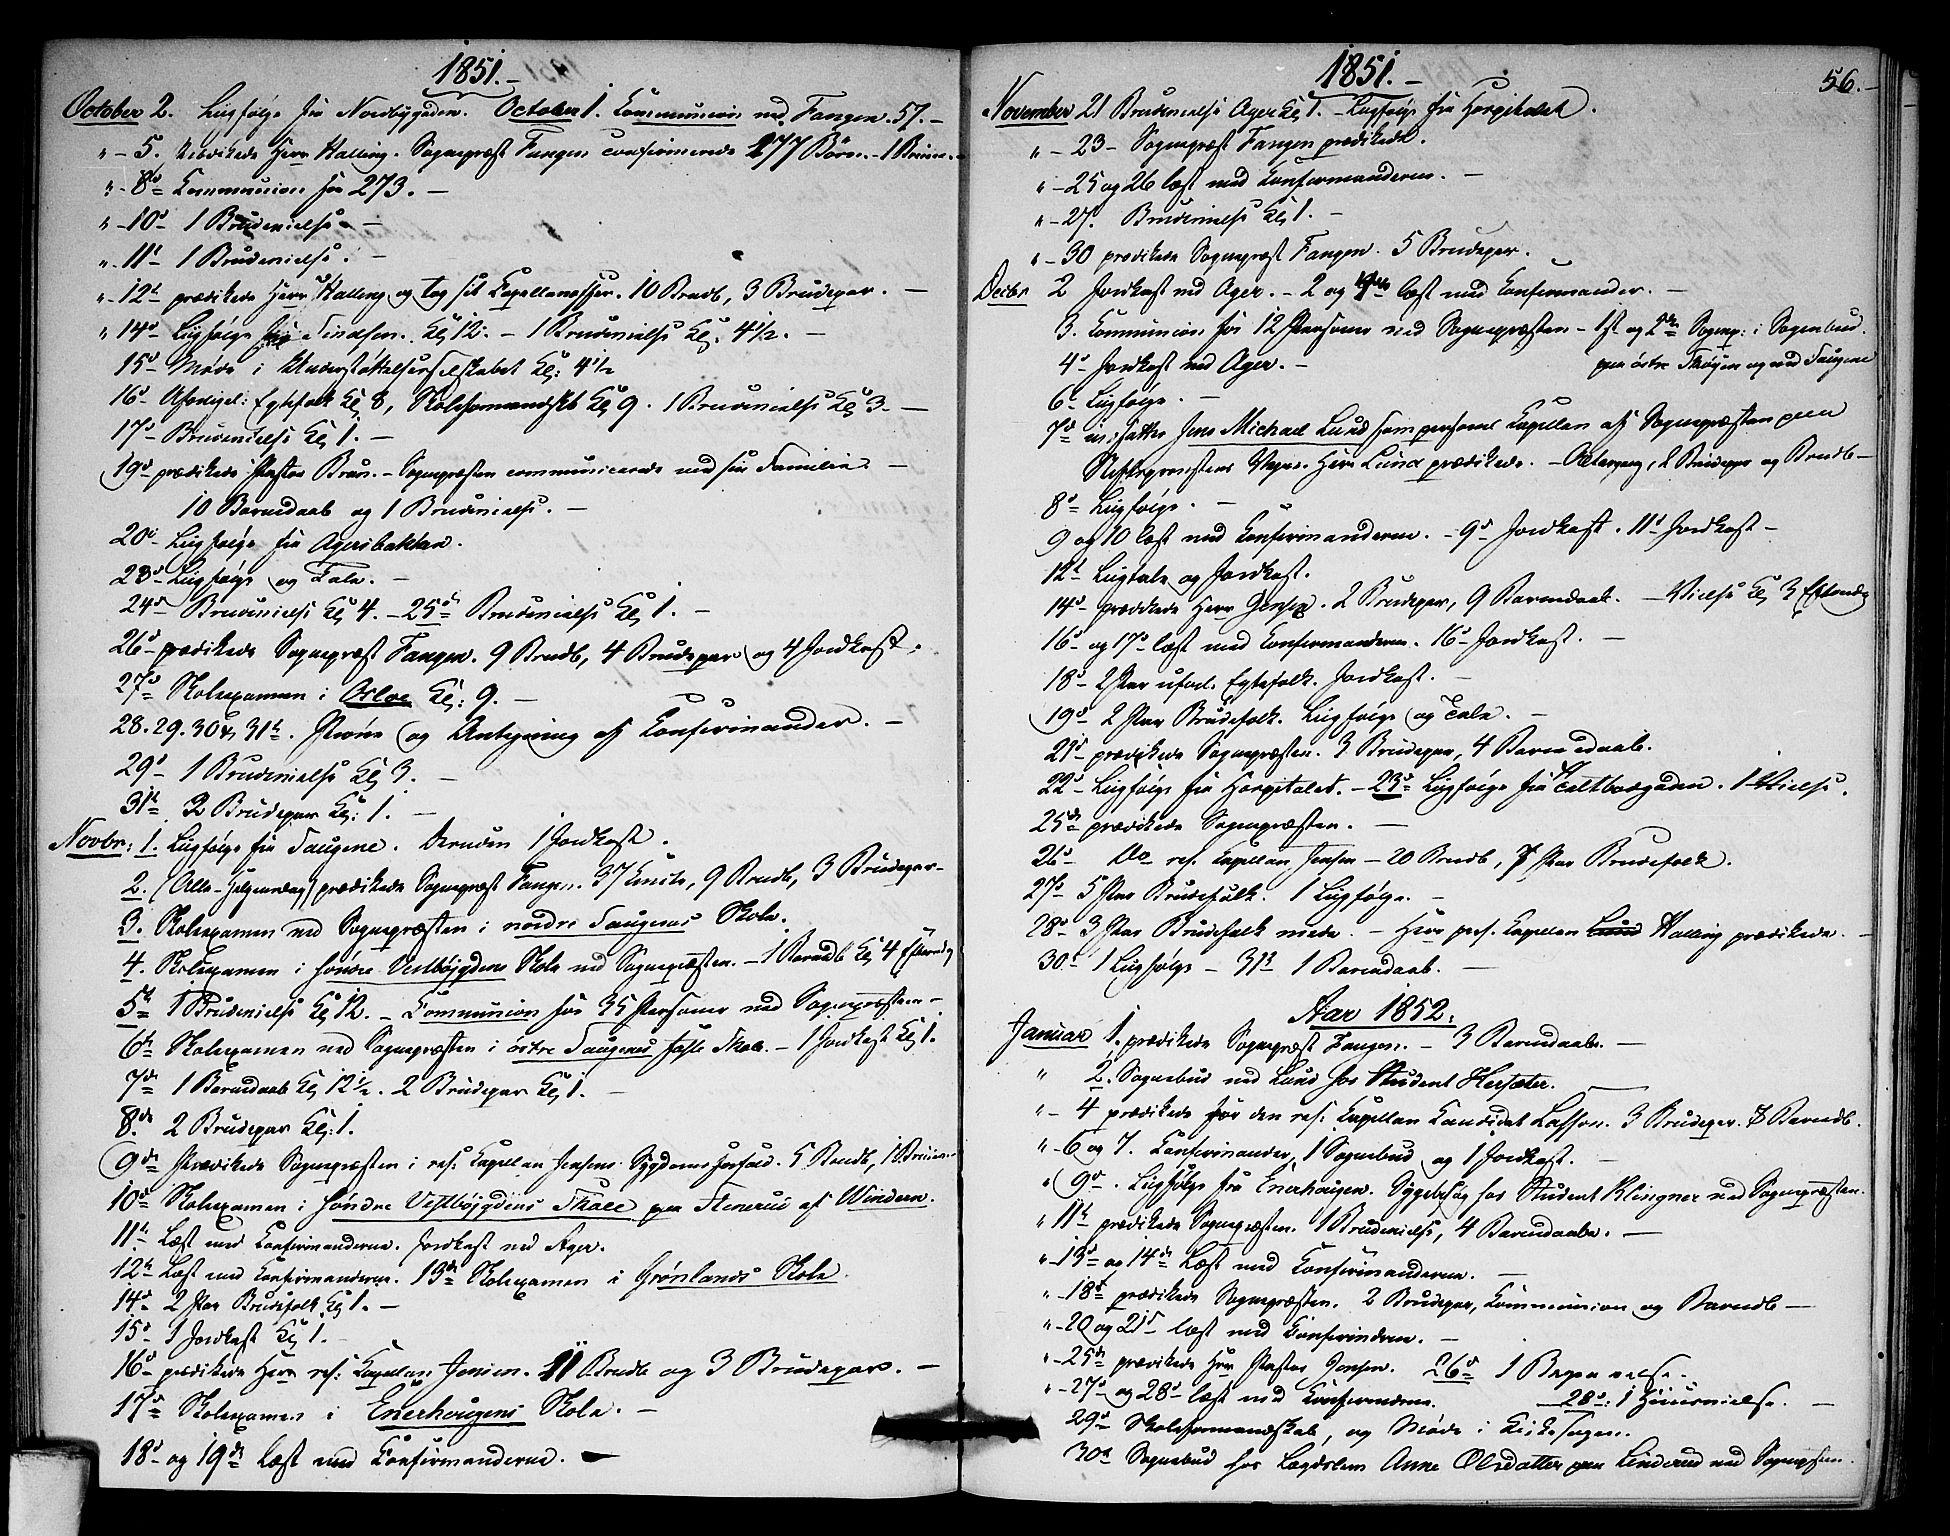 1851.-
October 2. Liigfølge fra Nordbygaden. October 1. Communion ved Fangen. 57.-
" - 5. Herr Halling. Sognepræst Fangen confirmerede 277 Børn. - 1
" - 8de Communion for 273. -
" - 10d 1 Brudevielse -
" - 11t 1 Brudevielse. -
" - 12t prædikede Herr Halling og tog sit Capellan 10 Barndb, 3 Brudepar. -
" 14d Liigfølge fra Kl 12. - 1 Brudevielse Kl. 4 1/2. -
15d Møde i Understøttelsesselskabet Kl: 4 1/2
16d Egtefolk Kl 8, Skoleformandskb Kl 9. 1 Brudevielse Kl 3. -
17d Brudevielse Kl 1. -
19d prædikede Pastor Brun. - Sognepræsten communicerede med sin Familie. -
10 Barnedaab og 1 Brudevielse. -
20d Liigfølge fra Agersbakken.
23d Liigfølge og Tale. -
24d Brudevielse Kl 4. - 25d Brudevielse Kl 1. -
26d prædikede Sognepræst Fangen. 9 Brndb, 4 Brudepar og 4 Jordkast.
27d Skoleexamen i Osloe Kl: 9. -
28. 29. 30 & 31t. Prøve og Antegning af Confirmander. -
29d 1 Brudevielse Kl 3. -
31t 2 Brudepar Kl: 1. -
Novbr: 1. Liigfølge fra Saugene. Desuden 1 Jordkast.
2. (Alle-Helgensdag) prædikede Sognepræst Fangen. 37 9 Brndb, 3 Brudepar -
3. Skoleexamen ved Sognepræsten i nordre Saugenes Skole.
4. Skolexamen i søndre Vestbøigdens Skole ved Sognepræsten. - 1 Barndb Kl 4 Eftermdg
5te 1 Brudevielse Kl 12. - Communion for 35 Personer ved Sognepræsten -
6te Skoleexamen ved Sognepræsten i østre Saugenes faste Skole. - 1 Jordkast Kl 1.
7de 1 Barnedaab Kl 12 1/2. 2 Brudepar Kl 1. -
8de 2 Brudepar Kl: 1.
9de Prædikede Sognepræsten i res: Capellan Jensens Sygdoms forfald. 5 Brndb, 1
10de Skoleexamen i søndre Vestbøigdens Skole paa Steneruud af Windern.
11te Læst med Confirmanderne. Jordkast ved Ager.
12te Læst med Confirmanderne. 13de Skolexamen i Grønlands Skole.
14de 2 Par Brudefolk Kl 1. -
15d 1 Jordkast Kl 1. -
16d prædikede Herr res: Capellan Jensen. 11 Brndb og 3 Brudepar. -
17d Skolexamen i Enerhougens Skole. -
18d og 19de læst med Confirmanderne. -
1851.-
56.-
November 21 Brudevielse Ager Kl 1. - Liigfølge fra Hospitalet.
" - 23 - Sognepræst Fangen prædikede.
" - 25 og 26 læst med Confirmanderne. -
" - 27. Brudevielse Kl 1. -
" - 30 prædikede Sognepræst Fangen. 5 Brudepar.
Decbr 2 Jordkast ved Ager. - 2 og læst med Confirmander. -
3. Communion for 12 Personer ved Sognepræsten - 1st og 2den Sognep: i Sognebud.
4d Jordkast ved Ager. - paa østre Skøyen og ved Saugene
6t Liigfølge. -
7de indsattes Jens Michael Lund som personel Capellan af Sognepræsten paa
Stiftsprovstens Vegne. Herr Lund prædikede. - 2 Brudepar og Brndb -
8d Liigfølge. -
9 og 10 læst med Confirmanderne. - 9d Jordkast. 11d Jordkast -
12te Liigtale og Jordkast.
14d prædikede Herr Jensen. 2 Brudepar, 9 Barnedaab. - Vielse Kl 3 Eftermdg
16d og 17d læst med Confirmanderne. 16d Jordkast. -
18d 2 Par Egtefolk. Jordkast. -
19d 2 Par Brudefolk. Liigfølge og Tale. -
21d prædikede Sognepræsten. 3 Brudepar, 4 Barnedaab.
22d Liigfølge fra Hospitalet. - 23d Liigfølge fra 1 Vielse.
25de prædikede Sognepræsten. -
26d Do res. Capellan Jensen - 20 Brndb, 7 Par Brudefolk.
27d 5 Par Brudefolk. 1 Liigfølge. -
28d 3 Par Brudefolk - Herr pers. Capellan Lund Halling prædikede. -
30t 1 Liigfølge - 31te 1 Barnedaab. -
Aar 1852.
Januar 1. prædikede Sognepræst Fangen. - 3 Barnedaab. -
" 2. Sognebud ved Lund hos Student Hersæter.
" - 4 prædikede for den res. Capellan Candidat Lassen. 3 Brudepar. 8 Barndb.
" - 6 og 7. Confirmander, 1 Sognebud og 1 Jordkast. -
" 9d. Liigfølge fra Enerhougen. Sygebesøg hos Student Klingner ved Sognepræsten.
" 11te prædikede Sognepræsten. 1 Brudevielse, 4 Barnedaab. -
" - 13d og 14de Læst med Confirmanderne. -
" - 18d prædikede Sognepræsten. 2 Brudepar, Communion og Barndb -
" - 20 og 21d læst med Confirmdrne. -
" - 25de prædikede Herr Pastor Jensen. 26de 1 Begravelse.
" - 27d og 28d læst med Confirmdrne. - 28d: 1 Huusvielse. -
29d Skoleformandskab, og Møde i
30te Sognebud hos Lægdslem Anne Olsdatter paa Linderud ved Sognepræsten.